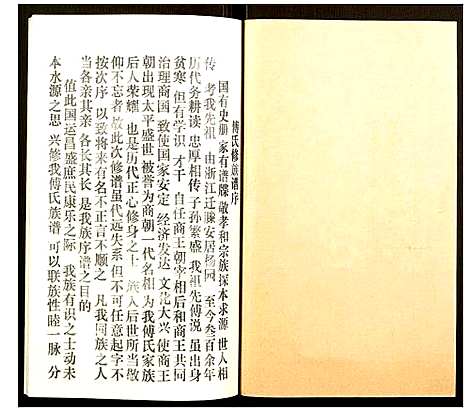 傅氏修族谱序
国有史册 家有谱牒 敬孝和宗族 探本求源 世入相
传 考我先祖 由浙江迁滕安居杨园 至今叁百余年
历代务耕读 忠厚相传 子孙繁盛 我祖先傅说 虽出身
贫寒 但有学识 才干 自任商王朝宰相后 和商王共同
治理商国 致使国家安定 经济发达 文化大兴 使商王
朝出现太平盛世 被誉为商朝一代名相 为我傅氏家族
后人荣耀 也是历代正心修身之士 族入后世所当敬
仰不忘者 故此次修谱虽代远失系 但不可任意起字不
按次序 以致将来名不正言不顺之 凡我同族之人
当各亲其亲 各长其长 是我族序谱之目的
值此国运昌盛庶民康乐之际 我族有识之士动未
本水源之思 兴修我傅氏族谱 可以联族性睦一脉 分